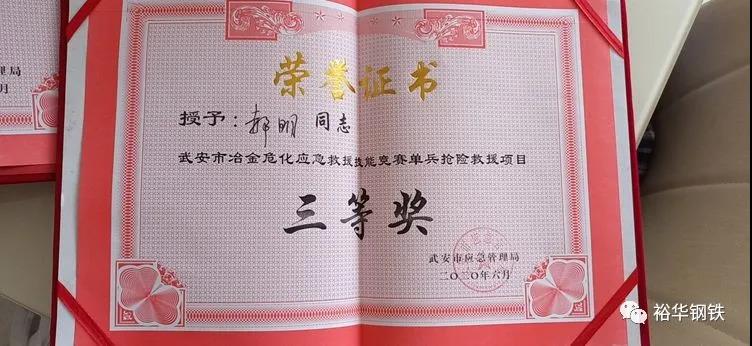 荣誉证书
授予：郝明 同志
武安市冶金危化应急救援技能竞赛单兵抢险救援项目
三等奖
武安市应急管理局
二〇二〇年六月
理局
月
裕华钢铁